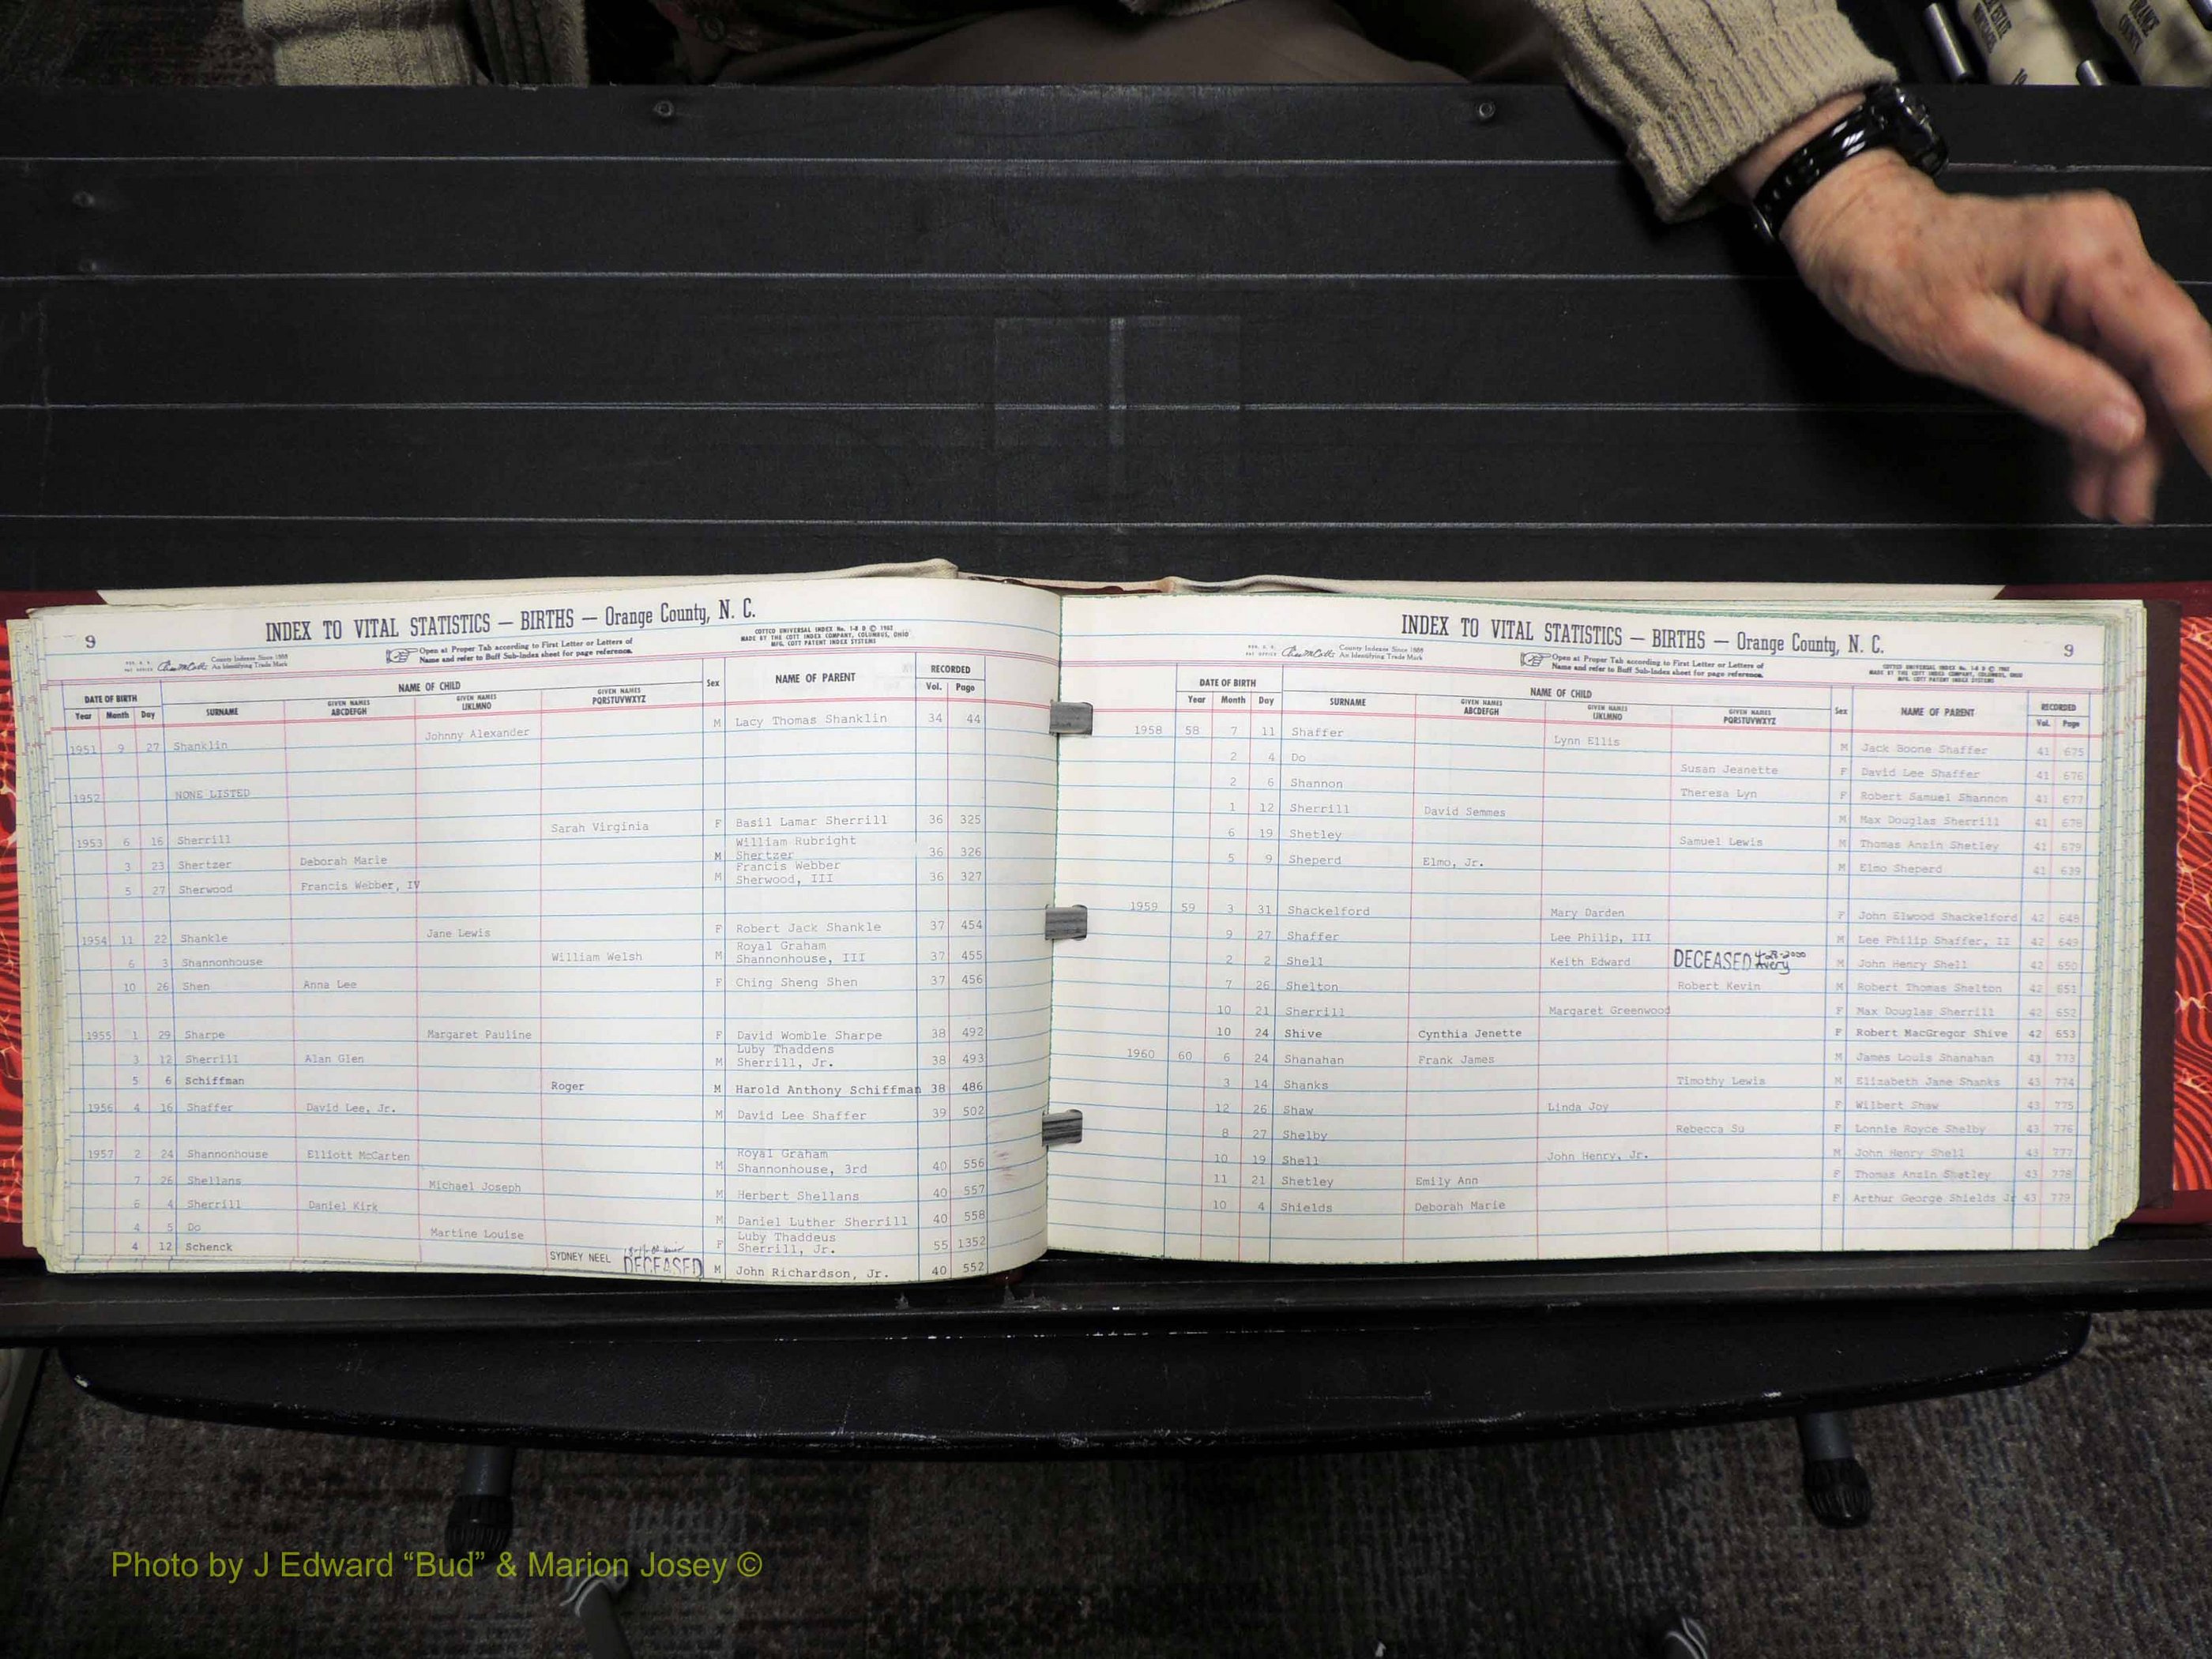 ORANGE COUNTY
9
INDEX TO VITAL STATISTICS — BIRTHS — Orange County, N. C.
County Indexes Since 1888
An Identifying Trade Mark
Open at Proper Tab according to First Letter or Letters of
Name and refer to Buff Sub-Index sheet for page reference.
COTTCO UNIVERSAL INDEX No. 1-8 B © 1962
MADE BY THE COTT INDEX COMPANY, COLUMBUS, OHIO
MFG. COTT PATENT INDEX SYSTEMS
DATE OF BIRTH NAME OF CHILD Sex NAME OF PARENT RECORDED
Year Month Day SURNAME GIVEN NAMES ABCDEFGH GIVEN NAMES IJKLMNO GIVEN NAMES PQRSTUVWXYZ Vol. Page
1951 9 27 Shanklin Johnny Alexander M Lacy Thomas Shanklin 34 44
1952 NONE LISTED
1953 6 16 Sherrill Sarah Virginia F Basil Lamar Sherrill 36 325
3 23 Shertzer Deborah Marie M William Rubright Shertzer 36 326
5 27 Sherwood Francis Webber, IV M Francis Webber Sherwood, III 36 327
1954 11 22 Shankle Jane Lewis F Robert Jack Shankle 37 454
6 3 Shannonhouse William Welsh M Royal Graham Shannonhouse, III 37 455
10 26 Shen Anna Lee F Ching Sheng Shen 37 456
1955 1 29 Sharpe Margaret Pauline F David Womble Sharpe 38 492
3 12 Sherrill Alan Glen M Luby Thaddens Sherrill, Jr. 38 493
5 6 Schiffman Roger M Harold Anthony Schiffman 38 486
1956 4 16 Shaffer David Lee, Jr. M David Lee Shaffer 39 502
1957 2 24 Shannonhouse Elliott McCarten M Royal Graham Shannonhouse, 3rd 40 556
7 26 Shellans Michael Joseph M Herbert Shellans 40 557
6 4 Sherrill Daniel Kirk M Daniel Luther Sherrill 40 558
4 5 Do Martine Louise F Luby Thaddeus Sherrill, Jr. 55 1352
4 12 Schenck SYDNEY NEEL DECEASED M John Richardson, Jr. 40 552
INDEX TO VITAL STATISTICS — BIRTHS — Orange County, N. C.
9
County Indexes Since 1888
An Identifying Trade Mark
Open at Proper Tab according to First Letter or Letters of
Name and refer to Buff Sub-Index sheet for page reference.
COTTCO UNIVERSAL INDEX No. 1-8 B © 1962
MADE BY THE COTT INDEX COMPANY, COLUMBUS, OHIO
MFG. COTT PATENT INDEX SYSTEMS
DATE OF BIRTH NAME OF CHILD Sex NAME OF PARENT RECORDED
Year Month Day SURNAME GIVEN NAMES ABCDEFGH GIVEN NAMES IJKLMNO GIVEN NAMES PQRSTUVWXYZ Vol. Page
1958 58 7 11 Shaffer Lynn Ellis M Jack Boone Shaffer 41 675
2 4 Do Susan Jeanette F David Lee Shaffer 41 676
2 6 Shannon Theresa Lyn F Robert Samuel Shannon 41 677
1 12 Sherrill David Semmes M Max Douglas Sherrill 41 678
6 19 Shetley Samuel Lewis M Thomas Anzin Shetley 41 679
5 9 Sheperd Elmo, Jr. M Elmo Sheperd 41 639
1959 59 3 31 Shackelford Mary Darden F John Elwood Shackelford 42 648
9 27 Shaffer Lee Philip, III M Lee Philip Shaffer, II 42 649
2 2 Shell Keith Edward DECEASED 4-28-2000 Avery M John Henry Shell 42 650
7 26 Shelton Robert Kevin M Robert Thomas Shelton 42 651
10 21 Sherrill Margaret Greenwood F Max Douglas Sherrill 42 652
10 24 Shive Cynthia Jenette F Robert MacGregor Shive 42 653
1960 60 6 24 Shanahan Frank James M James Louis Shanahan 43 773
3 14 Shanks Timothy Lewis M Elizabeth Jane Shanks 43 774
12 26 Shaw Linda Joy F Wilbert Shaw 43 775
8 27 Shelby Rebecca Su F Lonnie Royce Shelby 43 776
10 19 Shell John Henry, Jr. M John Henry Shell 43 777
11 21 Shetley Emily Ann F Thomas Anzin Shetley 43 778
10 4 Shields Deborah Marie F Arthur George Shields Jr 43 779
Photo by J Edward “Bud” & Marion Josey ©